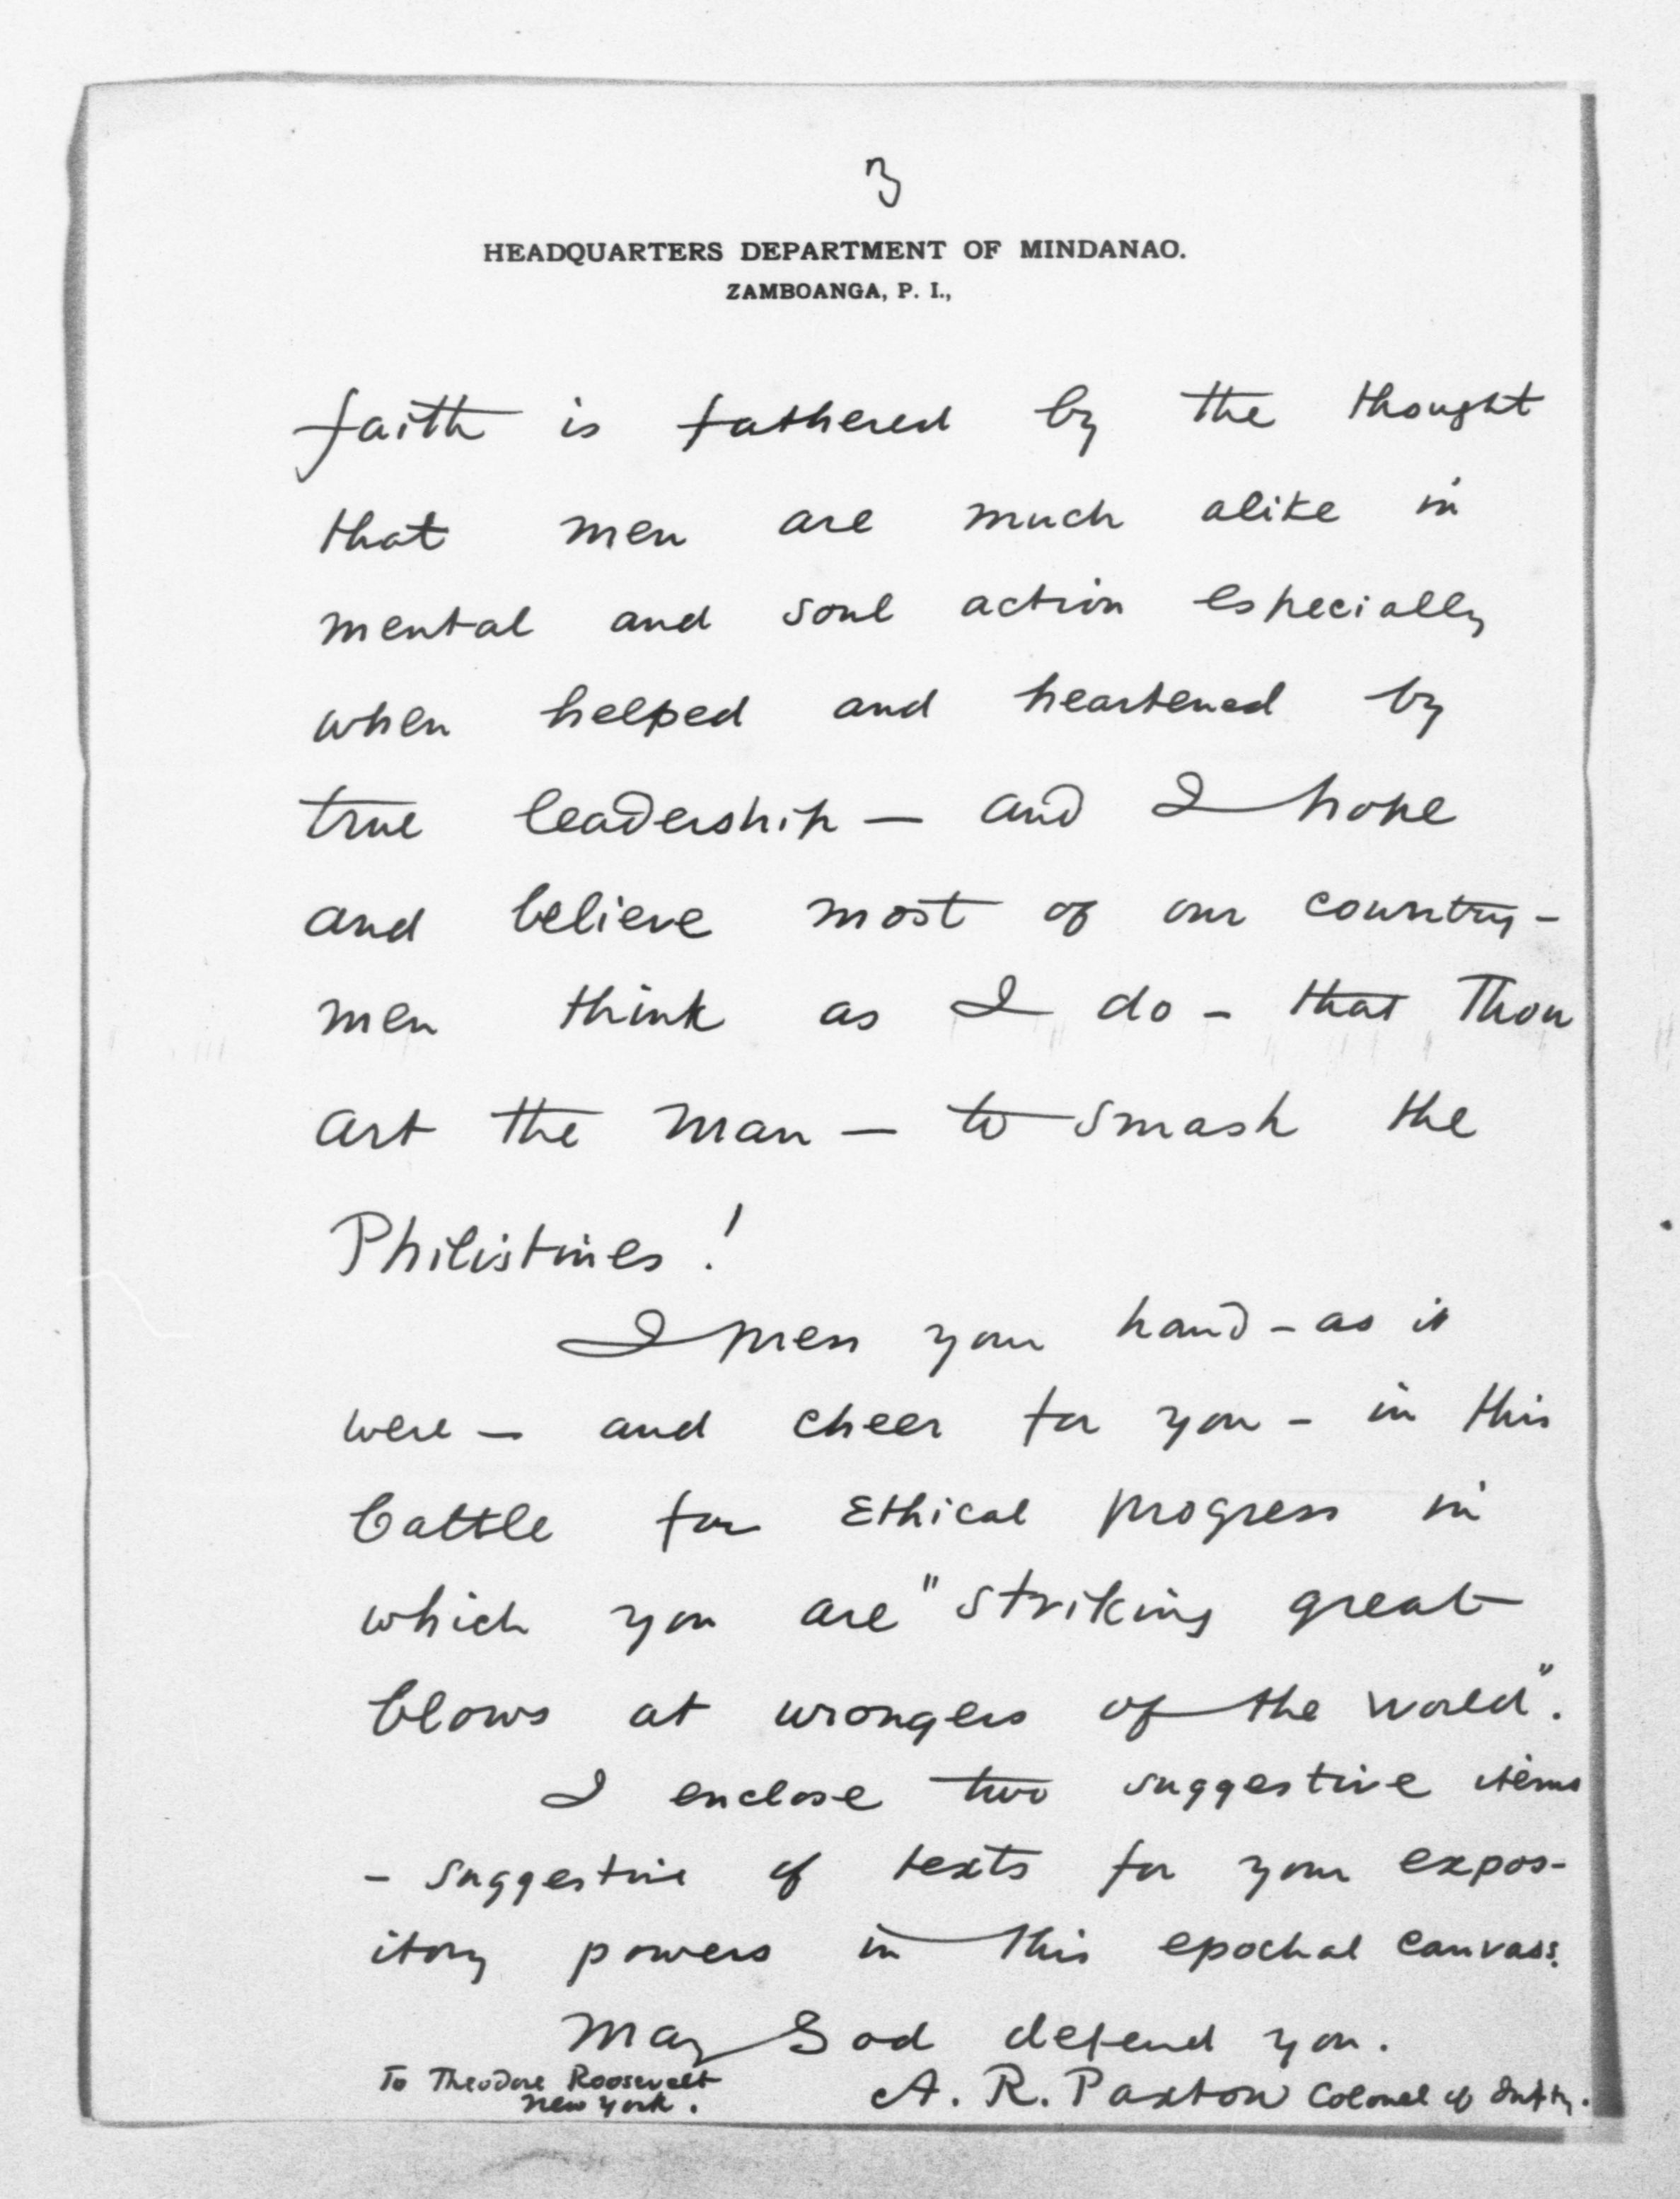 3
HEADQUARTERS DEPARTMENT OF MINDANAO.
ZAMBOANGA, P. I.,
faith is fathered by the thought
that men are much alike in
mental and soul action especially
when helped and heartened by
true leadership — and I hope
and believe most of our country-
men think as I do - that Thou
art the man — to smash the
Philistines!
I press your hand - as it
were — and cheer for you - in this
battle for Ethical progress in
which you are "striking great
blows at wrongers of the world".
I enclose two suggestive items
- suggestive of texts for your expos-
itory powers in this epochal canvass.
May God defend you.
To Theodore Roosevelt
New York.
A. R. Paxton Colonel of Inftry.